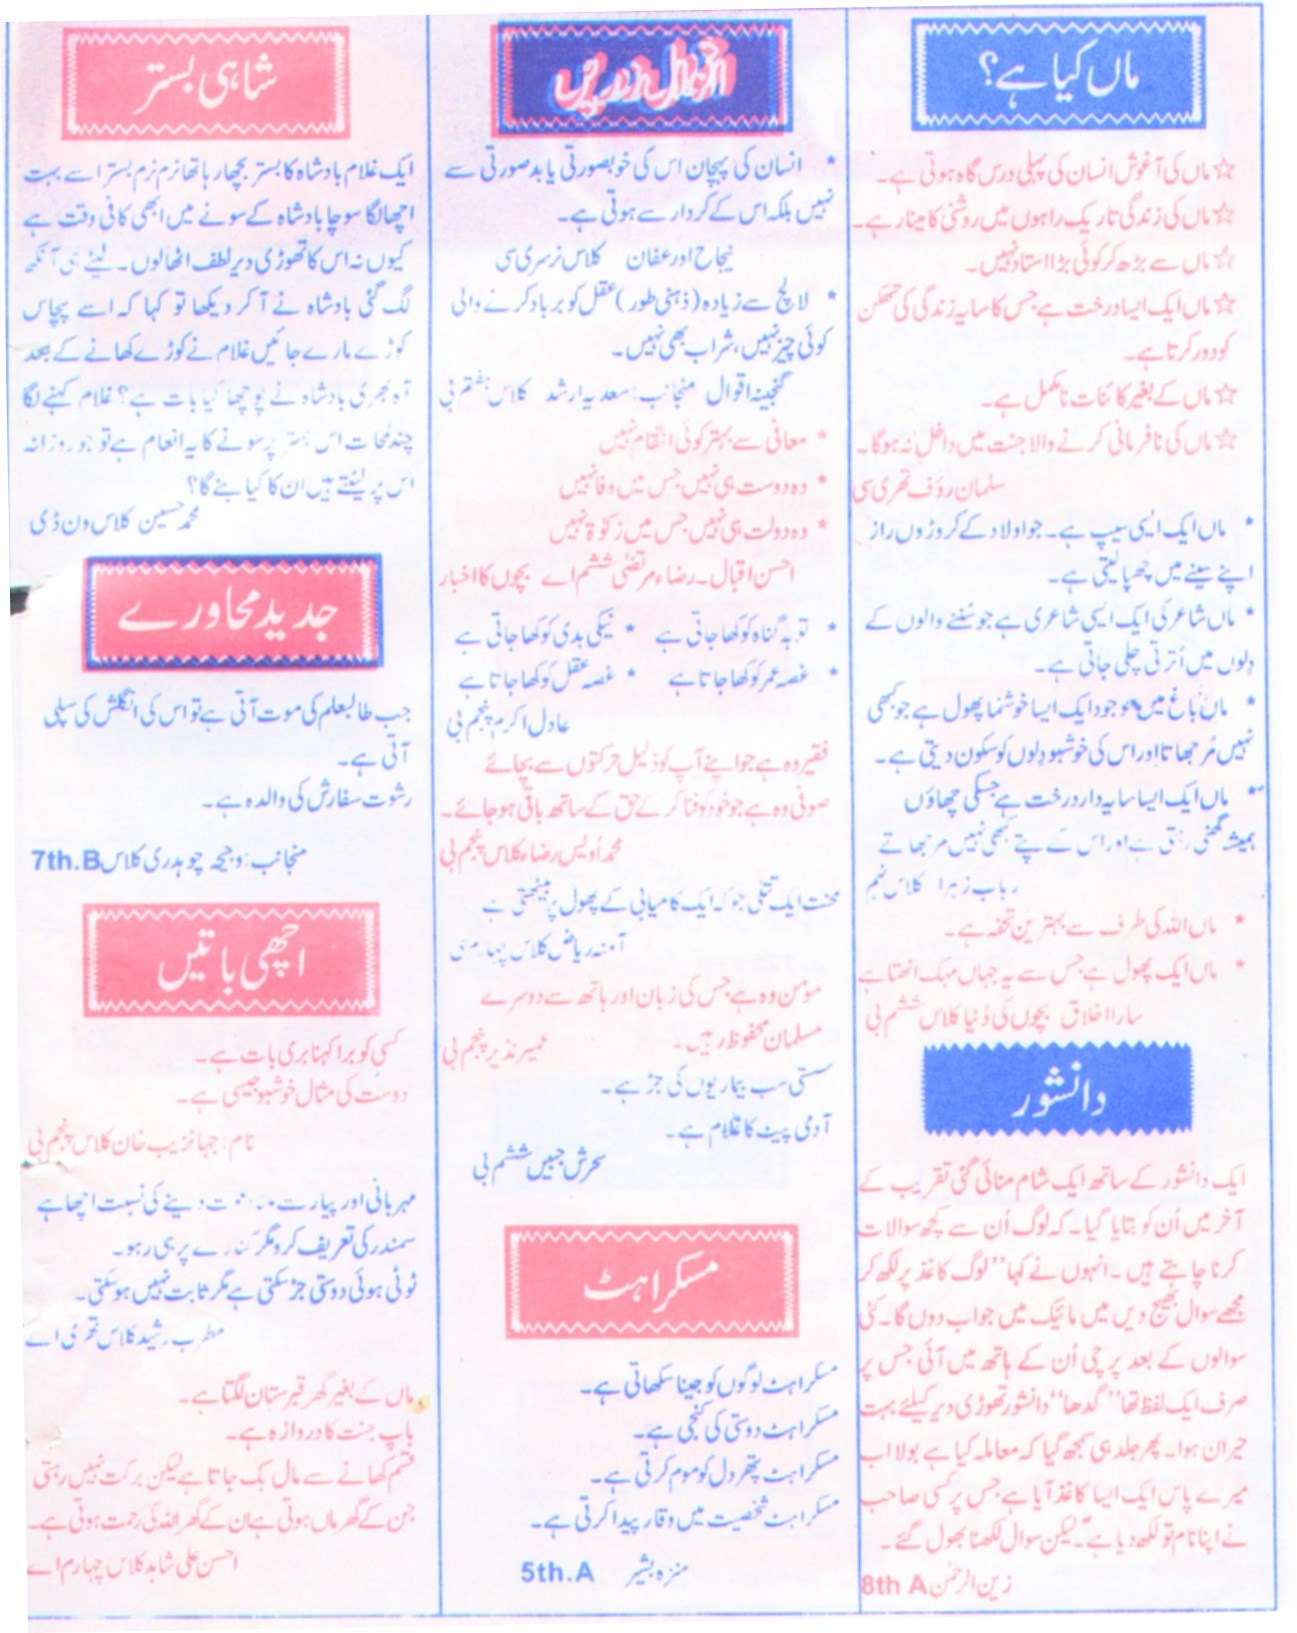 ماں کیا ہے؟
☆ماں کی آغوش انسان کی پہلی درس گاہ ہوتی ہے۔
☆ماں کی زندگی تاریک راہوں میں روشنی کا مینار ہے۔
☆ماں سے بڑھ کر کوئی بڑا استاد نہیں۔
☆ماں ایک ایسا درخت ہے جس کا سایہ زندگی کی تھکن
کو دور کرتا ہے۔
☆ماں کے بغیر کائنات نامکمل ہے۔
☆ماں کی نافرمانی کرنے والا جنت میں داخل نہ ہوگا۔
سلمان رؤف تھری سی
* ماں ایک ایسی سیپ ہے۔ جو اولاد کے کروڑوں راز
اپنے سینے میں چھپا لیتی ہے۔
* ماں شاعر کی ایک ایسی شاعری ہے جو سُننے والوں کے
دِلوں میں اُترتی چلی جاتی ہے۔
* ماں باغ میں موجود ایک ایسا خوشنما پھول ہے جو کبھی
نہیں مُرجھاتا اور اس کی خوشبو دِلوں کو سکون دیتی ہے۔
* ماں ایک ایسا سایہ دار درخت ہے جسکی چھاؤں
ہمیشہ گھنی رہتی ہے اور اس کے پتے کبھی نہیں مرجھاتے
رباب زہرا کلاس نہم
* ماں اللہ کی طرف سے بہترین تحفہ ہے۔
* ماں ایک پھول ہے جس سے یہ جہاں مہک اٹھتا ہے
سارا اخلاق بچوں کی دُنیا کلاس ششم بی
دانشور
ایک دانشور کے ساتھ ایک شام منائی گئی تقریب کے
آخر میں اُن کو بتایا گیا۔ کہ لوگ اُن سے کچھ سوالات
کرنا چاہتے ہیں۔ انہوں نے کہا ”لوگ کاغذ پر لکھ کر
مجھے سوال بھیج دیں میں مائیک میں جواب دوں گا۔ کئی
سوالوں کے بعد پرچی اُن کے ہاتھ میں آئی جس پر
صرف ایک لفظ تھا ”گدھا“ دانشور تھوڑی دیر کیلئے بہت
حیران ہوا۔ پھر جلد ہی سمجھ گیا کہ معاملہ کیا ہے بولا اب
میرے پاس ایک ایسا کاغذ آیا ہے جس پر کسی صاحب
نے اپنا نام تو لکھ دیا ہے۔ لیکن سوال لکھنا بھول گئے۔
زین الرحمٰن 8th A
اقوال زریں
* انسان کی پہچان اس کی خوبصورتی یا بدصورتی سے
نہیں بلکہ اس کے کردار سے ہوتی ہے۔
نجاح اور عفان کلاس نرسری سی
* لالچ سے زیادہ (ذہنی طور) عقل کو برباد کرنے والی
کوئی چیز نہیں، شراب بھی نہیں۔
گنجینہ اقوال منجانب: سعدیہ ارشد کلاس ہفتم بی
* معافی سے بہتر کوئی انتقام نہیں
* وہ دوست ہی نہیں جس میں وفا نہیں
* وہ دولت ہی نہیں جس میں زکوٰۃ نہیں
احسن اقبال۔ رضاء مرتضیٰ ششم اے بچوں کا اخبار
* توبہ گناہ کو کھا جاتی ہے * نیکی بدی کو کھا جاتی ہے
* غصہ عمر کو کھا جاتا ہے * غصہ عقل کو کھا جاتا ہے
عادل اکرم پنجم بی
فقیر وہ ہے جو اپنے آپ کو ذلیل حرکتوں سے بچائے
صوفی وہ ہے جو خود کو فنا کر کے حق کے ساتھ باقی ہو جائے۔
محمد اُویس رضاء کلاس پنجم بی
محنت ایک تتلی جو کہ ایک کامیابی کے پھول پر بیٹھتی ہے
آمنہ ریاض کلاس چہارم سی
مؤمن وہ ہے جس کی زبان اور ہاتھ سے دوسرے
مسلمان محفوظ رہیں۔ عمیر نذیر پنجم بی
سستی سب بیماریوں کی جڑ ہے۔
آدمی پیٹ کا غلام ہے۔
سحرش جبیں ششم بی
مسکراہٹ
مسکراہٹ لوگوں کو جینا سکھاتی ہے۔
مسکراہٹ دوستی کی کنجی ہے۔
مسکراہٹ پتھر دل کو موم کرتی ہے۔
مسکراہٹ شخصیت میں وقار پیدا کرتی ہے۔
منزہ بشیر 5th.A
شاہی بستر
ایک غلام بادشاہ کا بستر بچھا رہا تھا نرم نرم بستر اسے بہت
اچھا لگا سوچا بادشاہ کے سونے میں ابھی کافی وقت ہے
کیوں نہ اس کا تھوڑی دیر لطف اٹھا لوں۔ لیٹے ہی آنکھ
لگ گئی بادشاہ نے آ کر دیکھا تو کہا کہ اسے پچاس
کوڑے مارے جائیں غلام نے کوڑے کھانے کے بعد
آہ بھری بادشاہ نے پوچھا کیا بات ہے؟ غلام کہنے لگا
چند لمحات اس بستر پر سونے کا یہ انعام ہے تو جو روزانہ
اس پر لیٹتے ہیں ان کا کیا بنے گا؟
محمد حسین کلاس ون ڈی
جدید محاورے
جب طالبعلم کی موت آتی ہے تو اس کی انگلش کی سپلی
آتی ہے۔
رشوت سفارش کی والدہ ہے۔
منجانب: وجیحہ چوہدری کلاس 7th.B
اچھی باتیں
کسی کو برا کہنا بری بات ہے۔
دوست کی مثال خوشبو جیسی ہے۔
نام: جہانزیب خان کلاس پنجم بی
مہربانی اور پیار سے دینے کی نسبت اچھا ہے
سمندر کی تعریف کرو مگر کنارے پر ہی رہو۔
ٹوٹی ہوئی دوستی جڑ سکتی ہے مگر ثابت نہیں ہو سکتی۔
مطرب رشید کلاس تھری اے
ماں کے بغیر گھر قبرستان لگتا ہے۔
باپ جنت کا دروازہ ہے۔
قسم کھانے سے مال بک جاتا ہے لیکن برکت نہیں رہتی
جن کے گھر ماں ہوتی ہے ان کے گھر اللہ کی رحمت ہوتی ہے۔
احسن علی شاہد کلاس چہارم اے